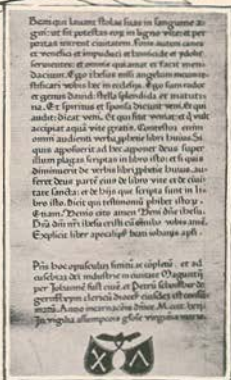 Beati qui lavant stolas suas in sanguine a-
gni: ut sit potestas eor in ligno vite: et per
portas intrent civitatem. Foris autem canes
et venefici et impudici et homicide et ydolis
servientes: et omnis qui amat et facit men-
dacium. Ego ihesus misi angelum meum te-
stificari vobis hec in ecclesijs. Ego sum radix
et genus david: stella splendida et matutina
na. Et spiritus et sponsa dicunt veni. Et qui
audit: dicat veni. Et qui sitit veniat: et q vult
accipiat aquā vite gratis. Contestor enim
omni audienti verba prophetie libri huius. Si
quis apposuerit ad hec apponet deus super
illum plagas scriptas in libro isto: et si quis
diminuerit de verbis libri prophetie huius: au-
feret deus partē eius de libro vite et de civi-
tate sancta: et de hijs que scripta sunt in li-
bro isto. Dicit qui testimoniū phibet istor.
Etiam. Venio cito amen. Veni dñe ihesu.
Grā dñi nri ihesu cristi cū omnibo vobis amē.
Explicit liber apocalipsꝭ beati iohannis apłi.
Pñs hoc opusculum finitū ac cōpletū. et ad
eusebiaz dei industrie in civitate Magunti
per Johannē fust civē. et Petrū schoiffher de
gernszheym clericū dioceꝭ eiusdeꝫ est consum-
matū. Anno incarnacōis dñice. M.cccc.lxij.
In vigilia assumpcōis gloſe virginis marie.